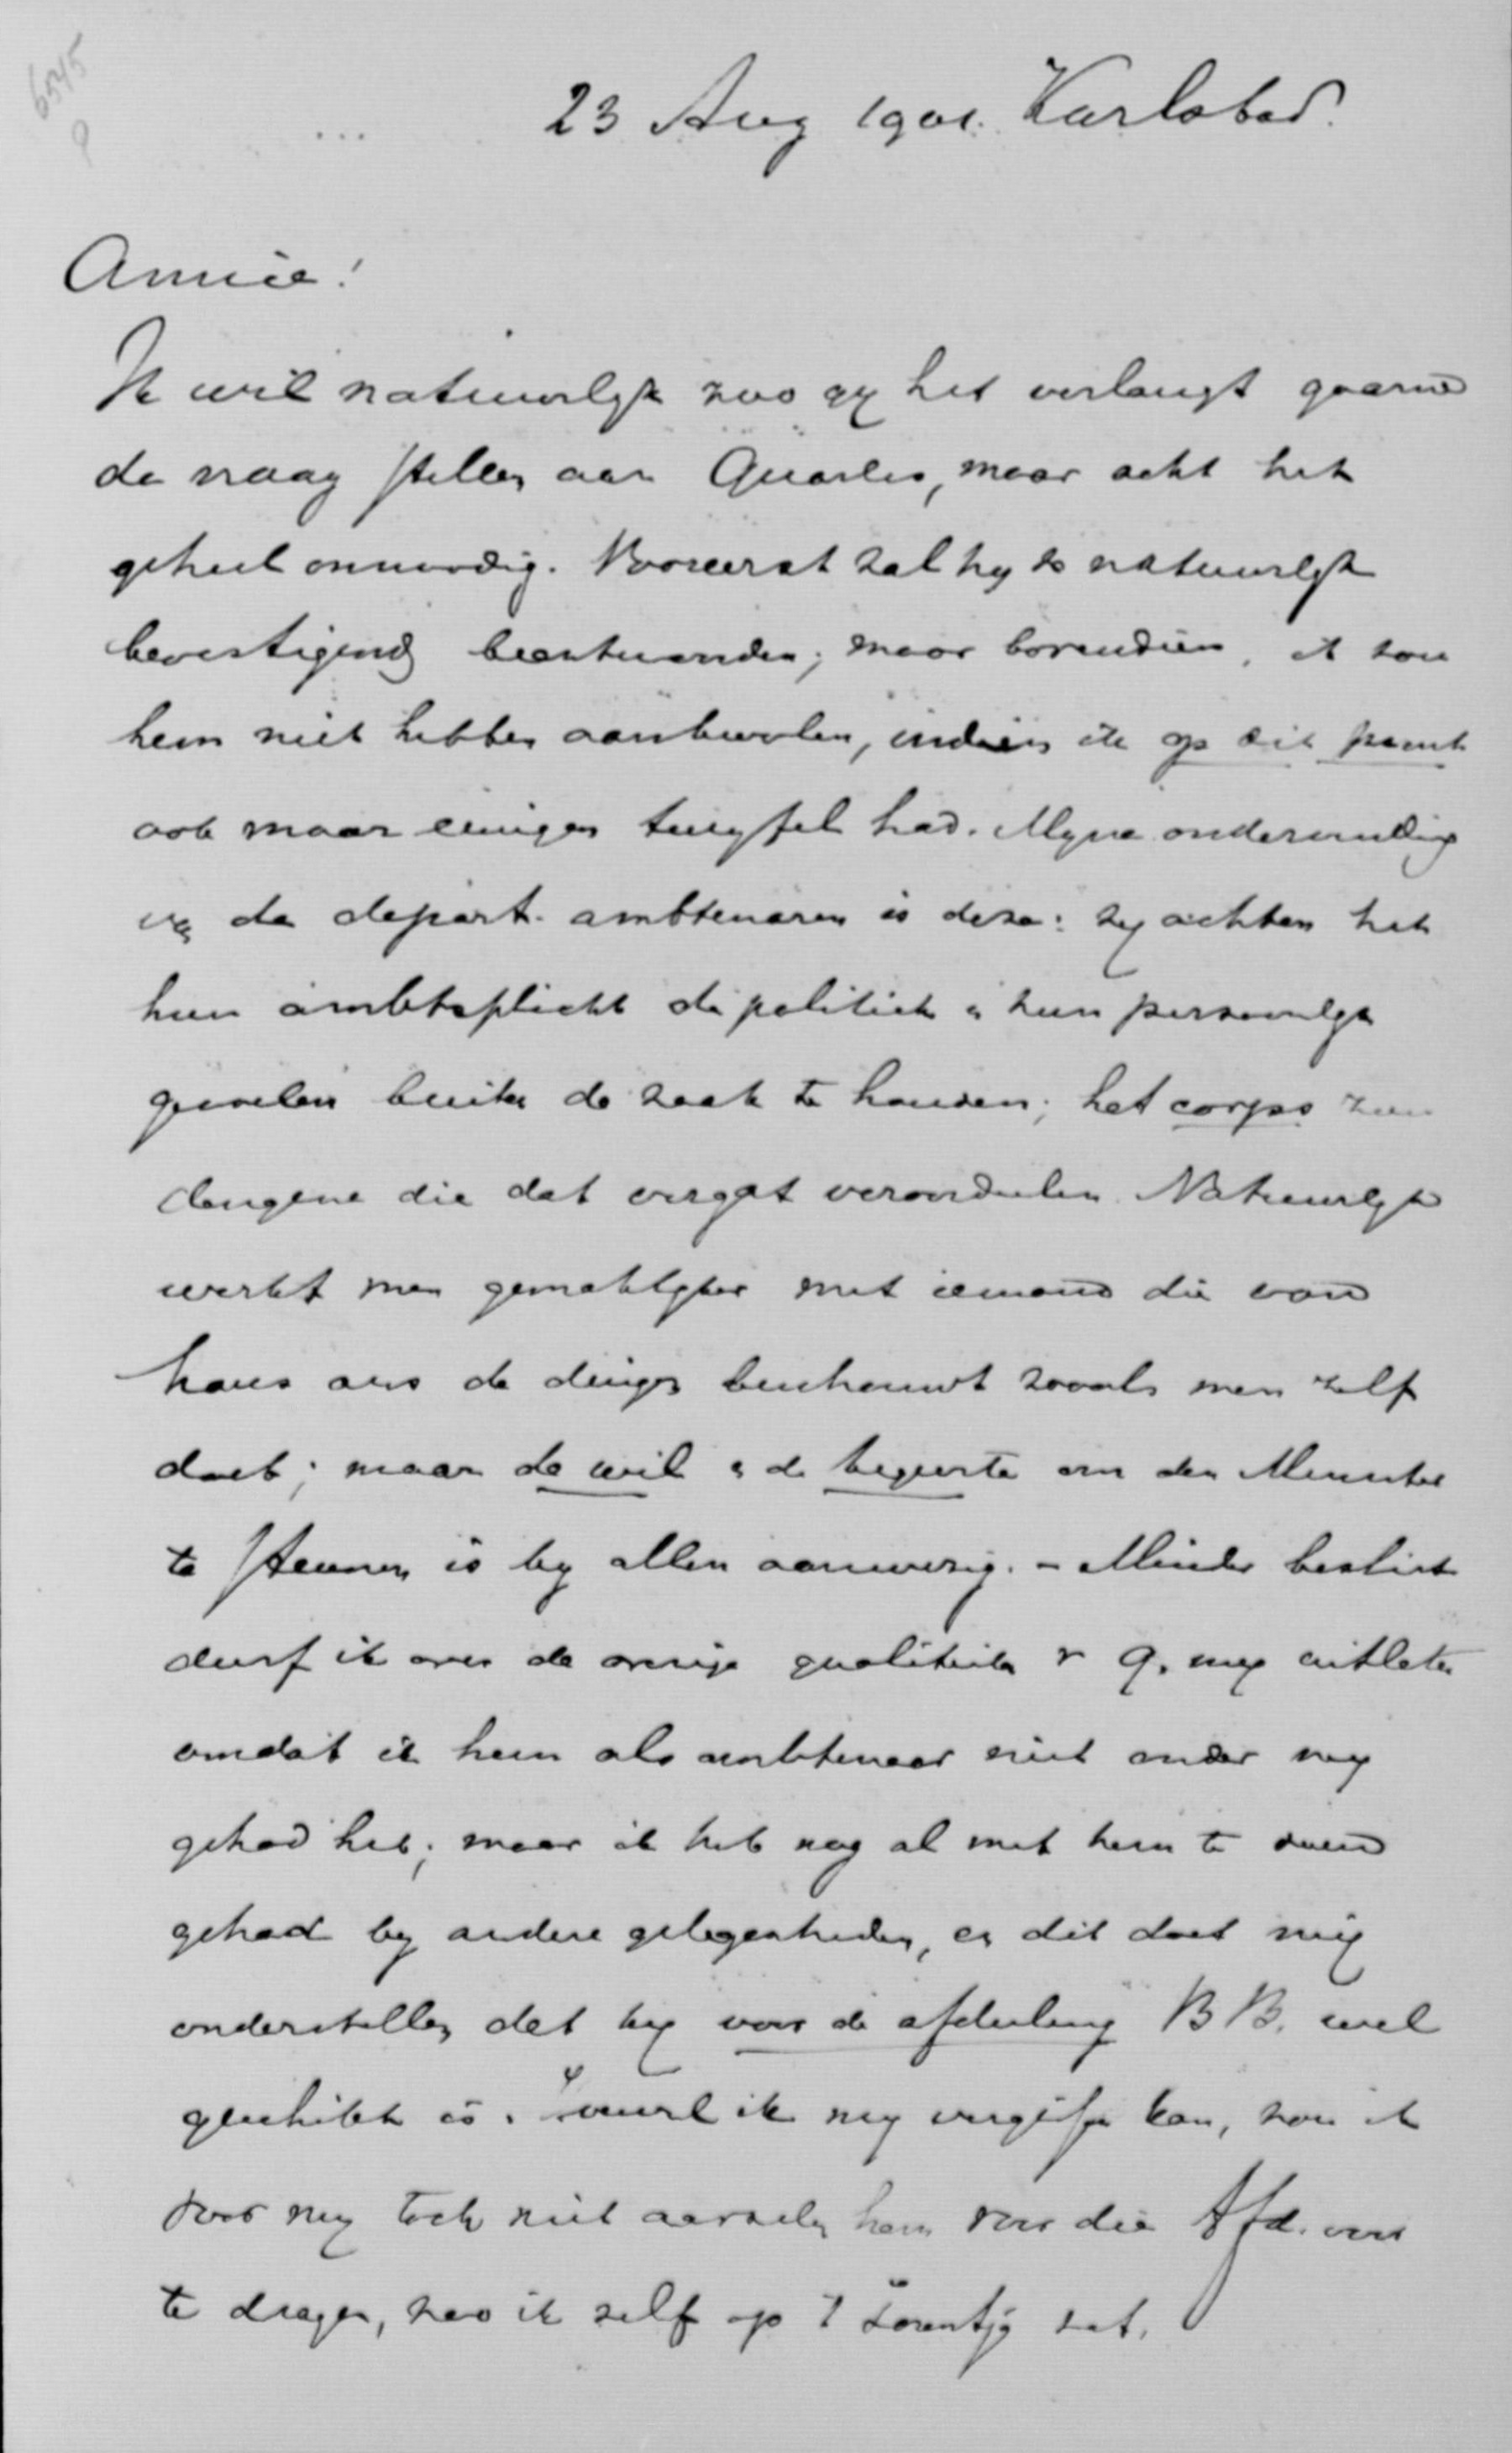 6545
23 Aug 1901. Karlsbad.
Amice!
Ik wil natuurlyk zoo gy het verlangt gaarne
de vraag stellen aan Quarles, maar acht het
geheel onnoodig. Vooreerst zal hy ze natuurlyk
bevestigend beantwoorden; maar bovendien, ik zou
hem niet hebben aanbevolen, indien ik op dit punt
ook maar eenigen twyfel had. Myne ondervinding
van de depart. ambtenaren is deze: zy achten het
hun ambtsplicht de politiek & hun persoonlyk
gevoelen buiten de zaak te houden; het corps zou
dengene die dat vergat veroordeelen. Natuurlyk
werkt men gemaklyker met iemand die van
haus aus de dingen beschouwt zooals men zelf
doet; maar de wil & de begeerte om den Minister
te steunen is by allen aanwezig. – Minder beslist
durf ik over de overige qualiteiten v Q. my uitlaten
omdat ik hem als ambtenaar niet onder my
gehad heb; maar ik heb nog al met hem te doen
gehad by andere gelegenheden, en dit doet my
onderstellen dat hy voor de afdeeling B B. wel
geschikt is. ik my vergissen kan, zou ik
voor my toch niet aarzelen hem voor die Afd. voor
te dragen, zoo ik zelf op 't zat.